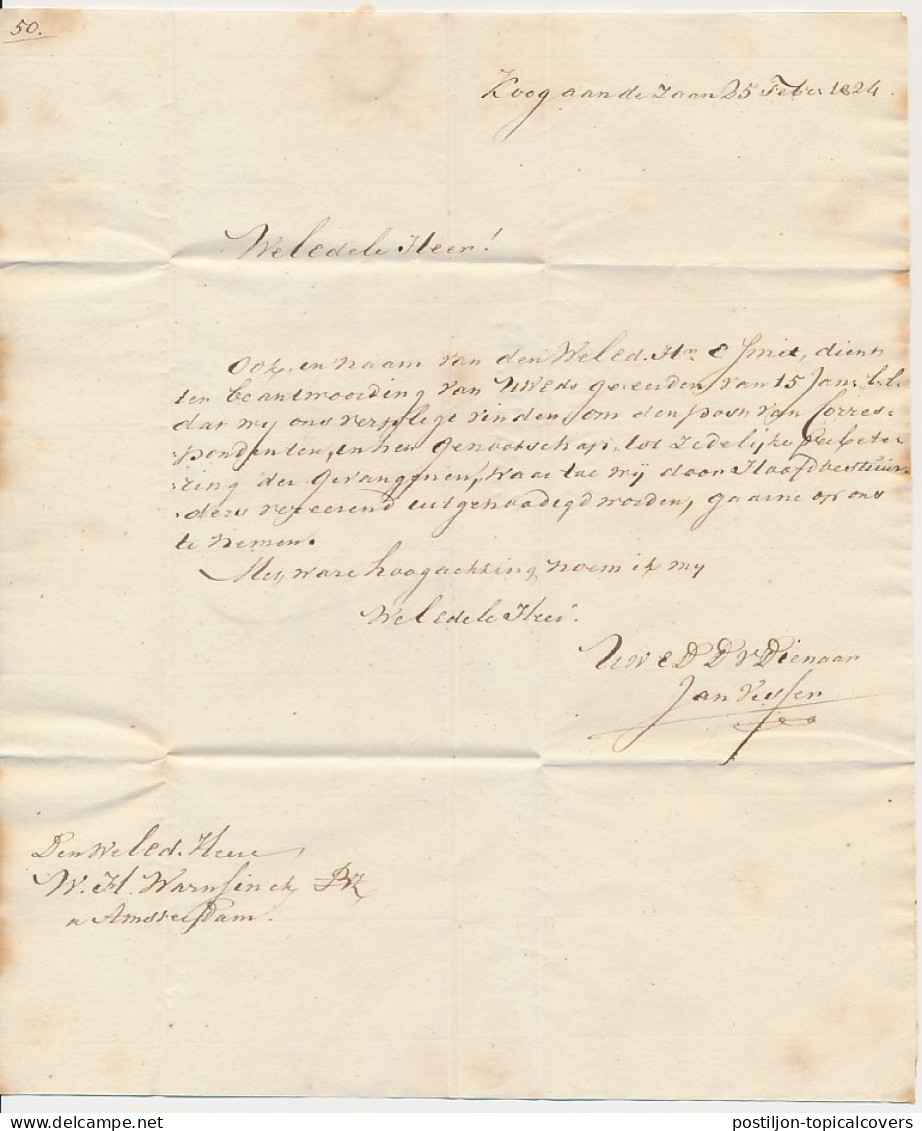 50.
Koog aan de Zaan 25 Febr. 1824
Weledele Heer!
Ook in naam van den Weled. Hr. E Smit, dient
ter beantwoording van UWEds geëerden van 15 Jan. l.l.
dat wij ons verpligt vinden, om den post van Corres-
pondenten, in het Genootschap, tot Zedelijke Verbete-
ring der Gevangenen, waar toe wij door Hoofdbestuur-
ders vereerend uitgenoodigd worden, gaarne op ons
te nemen.
Met ware hoogachting noem ik mij
Weledele Heer!
UWED D V Dienaar
Jan
Den Weled. Heere
W. H. Warnsinck
a Amsterdam.
postiljon-topicalcovers